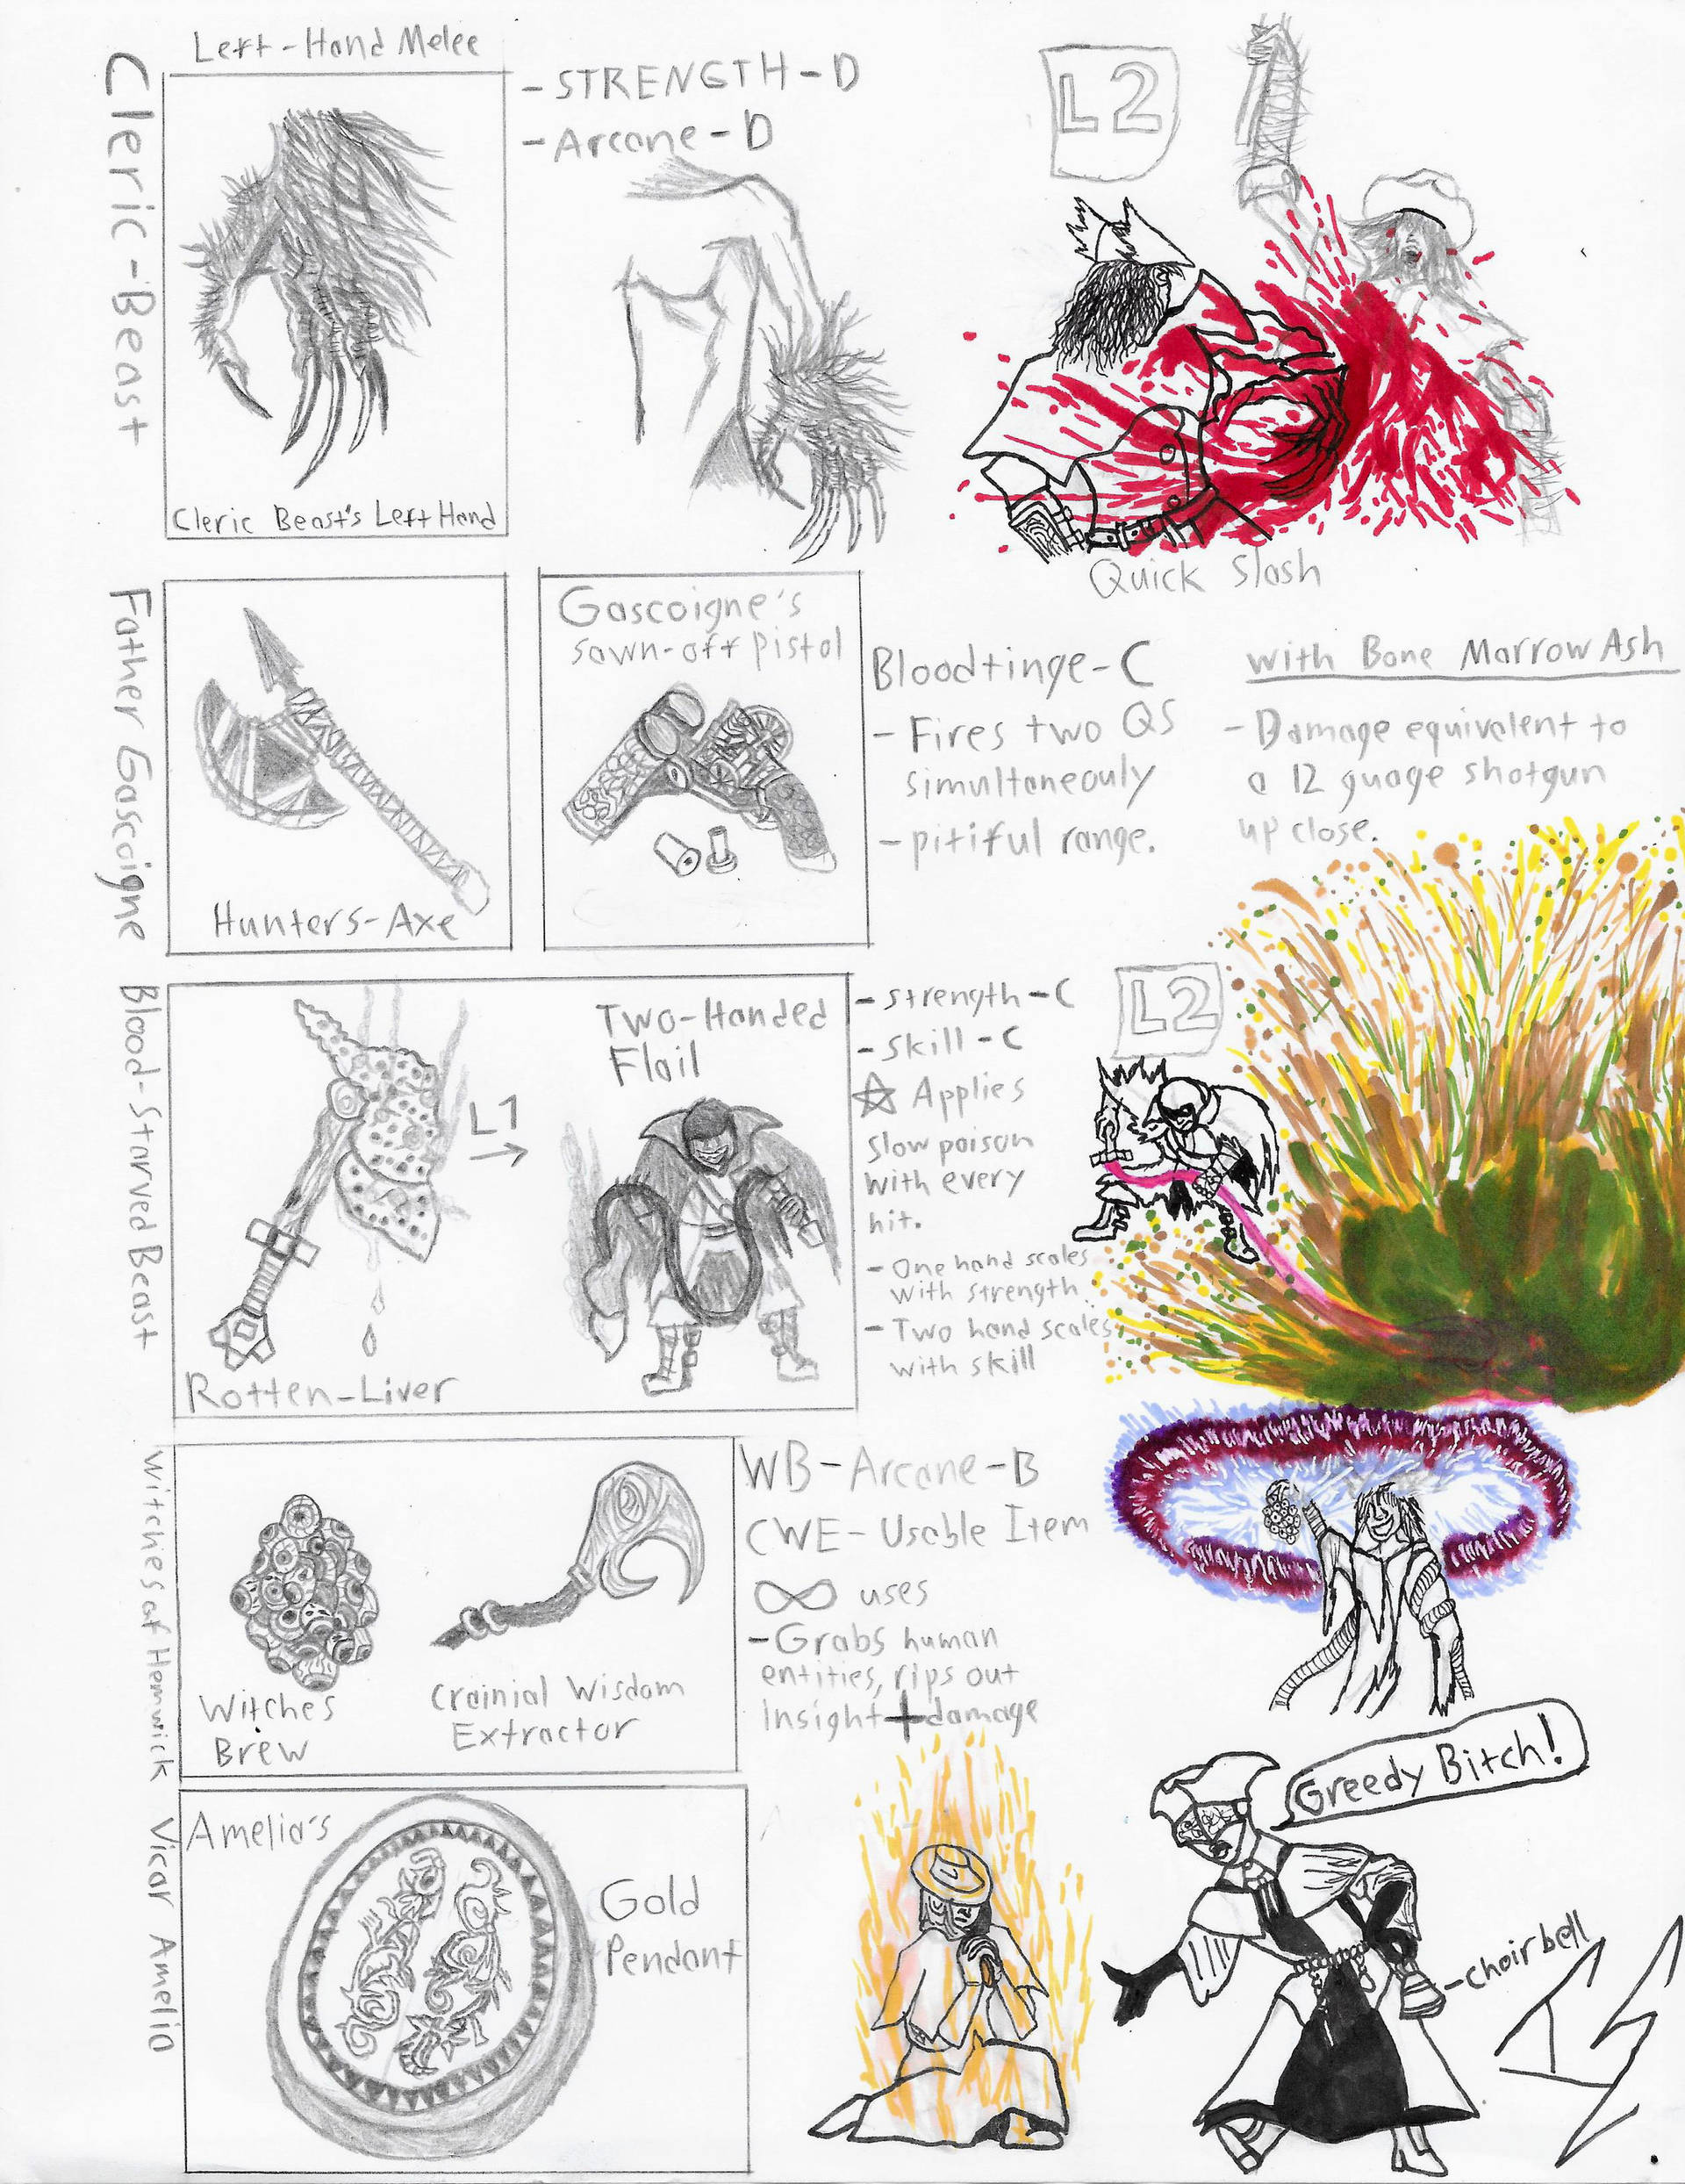 Cleric-Beast
Left-Hand Melee
Cleric Beast's Left Hand
-STRENGTH-D
-Arcane-D
L2
Quick Slash
Father Gascoigne
Hunters-Axe
Gascoigne's
sawn-off Pistol
Bloodtinge-C
-Fires two QS
simultaneouly
-pitiful range.
with Bone Marrow Ash
-Damage equivalent to
a 12 guage shotgun
up close.
Blood-Starved Beast
Rotten-Liver
L1
Two-Handed
Flail
-strength-C
-Skill-C
☆ Applies
slow poison
with every
hit.
-One hand scales
with strength.
-Two hand scales
with skill
L2
Witches of Hemwick
Witches
Brew
Crainial Wisdom
Extractor
WB-Arcane-B
CWE-Usable Item
∞ uses
-Grabs human
entities, rips out
Insight+damage
Vicar Amelia
Amelia's
Gold
Pendant
Greedy Bitch!
-choirbell